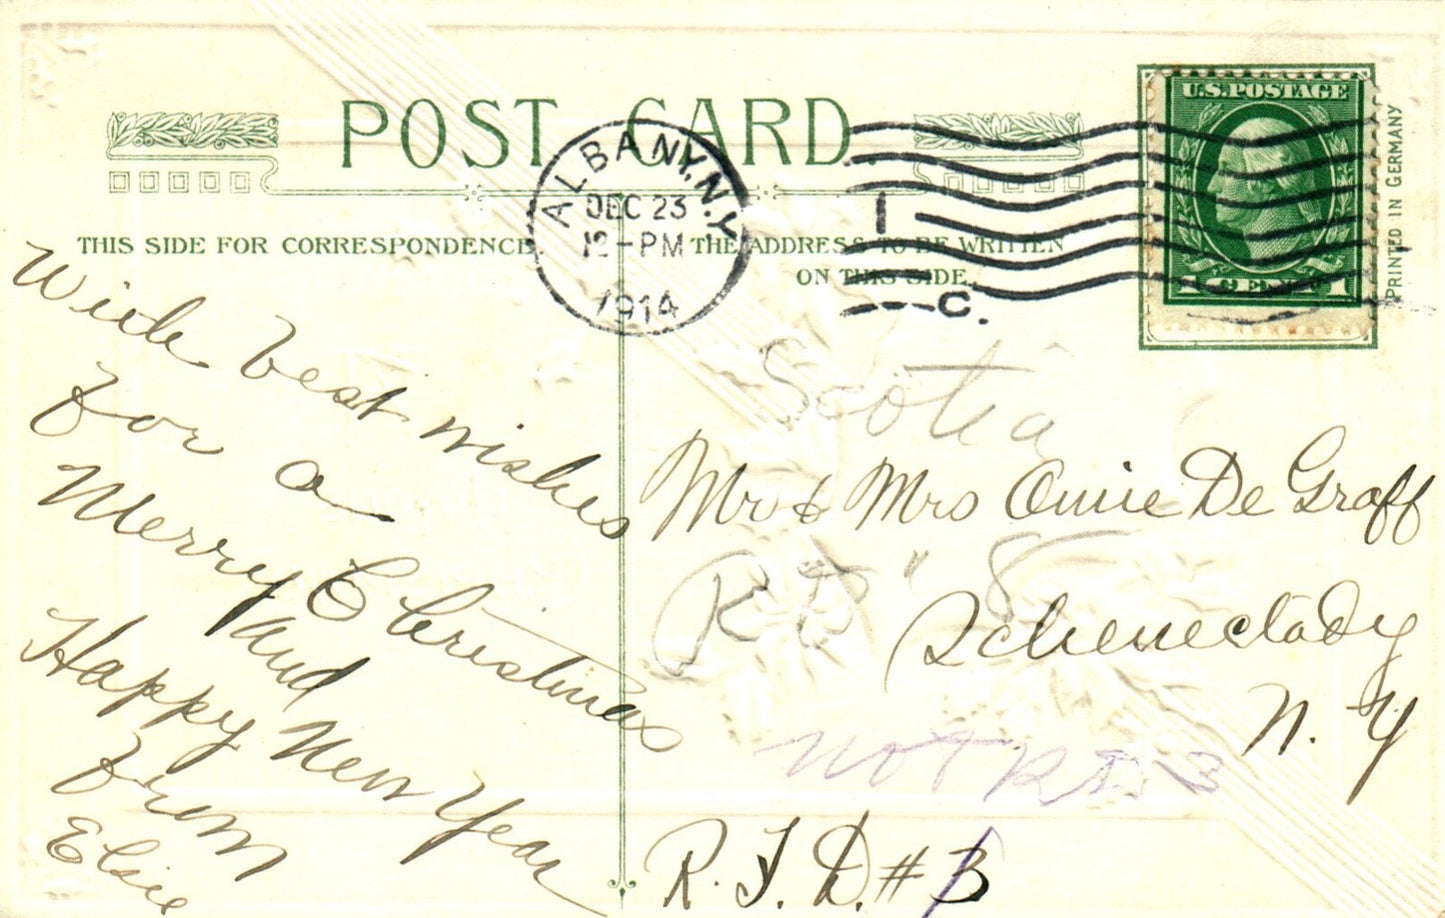 POST CARD.
U.S.POSTAGE
1 CENT 1
PRINTED IN GERMANY
ALBANY, N.Y.
DEC 23
12-PM
1914
1
C.
THIS SIDE FOR CORRESPONDENCE
THE ADDRESS TO BE WRITTEN
ON THIS SIDE.
With best wishes
for a
Merry Christmas
and
Happy New Year
from
Elsie
Scotia
Mr & Mrs Omie De Graff
R D " 8
Schenectady
N. Y
Not RD 3
R. F. D. # 3